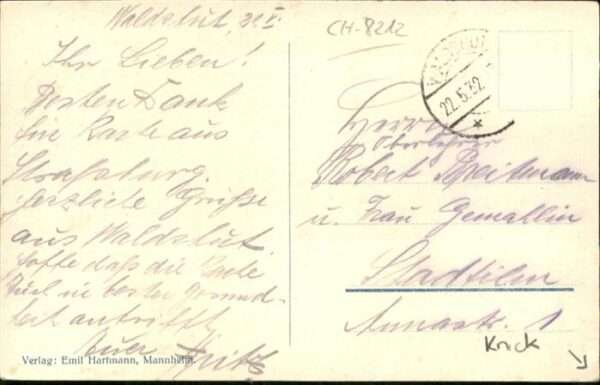 Waldshut, 21.V.
Ihr Lieben!
Besten Dank
für Karte aus
Straßburg.
Herzliche Grüße
aus Waldshut
Hoffe daß die Karte
Euch in bester Gesund-
heit antrifft
Euer Fritz
Verlag: Emil Hartmann, Mannheim.
CH-8212
WALDSHUT
22.5.32
Herrn
Oberlehrer
Robert Breitmann
u. Frau Gemahlin
Stadtilm
Annastr. 1
Knick